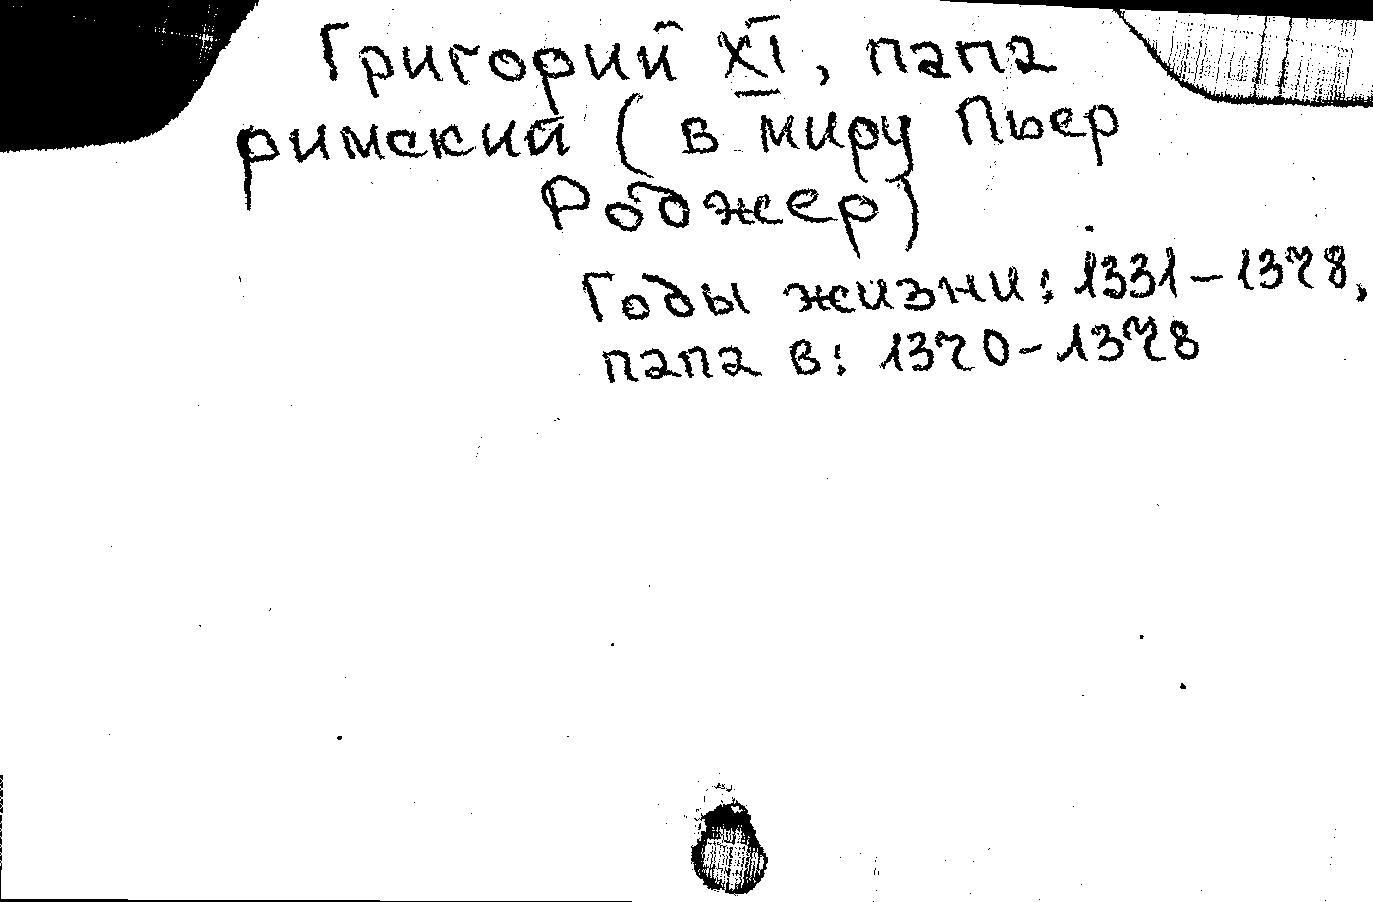 Григорий XI, папа
римский (в миру Пьер
Роджер)
Годы жизни: 1331-1378,
папа в: 1370-1378